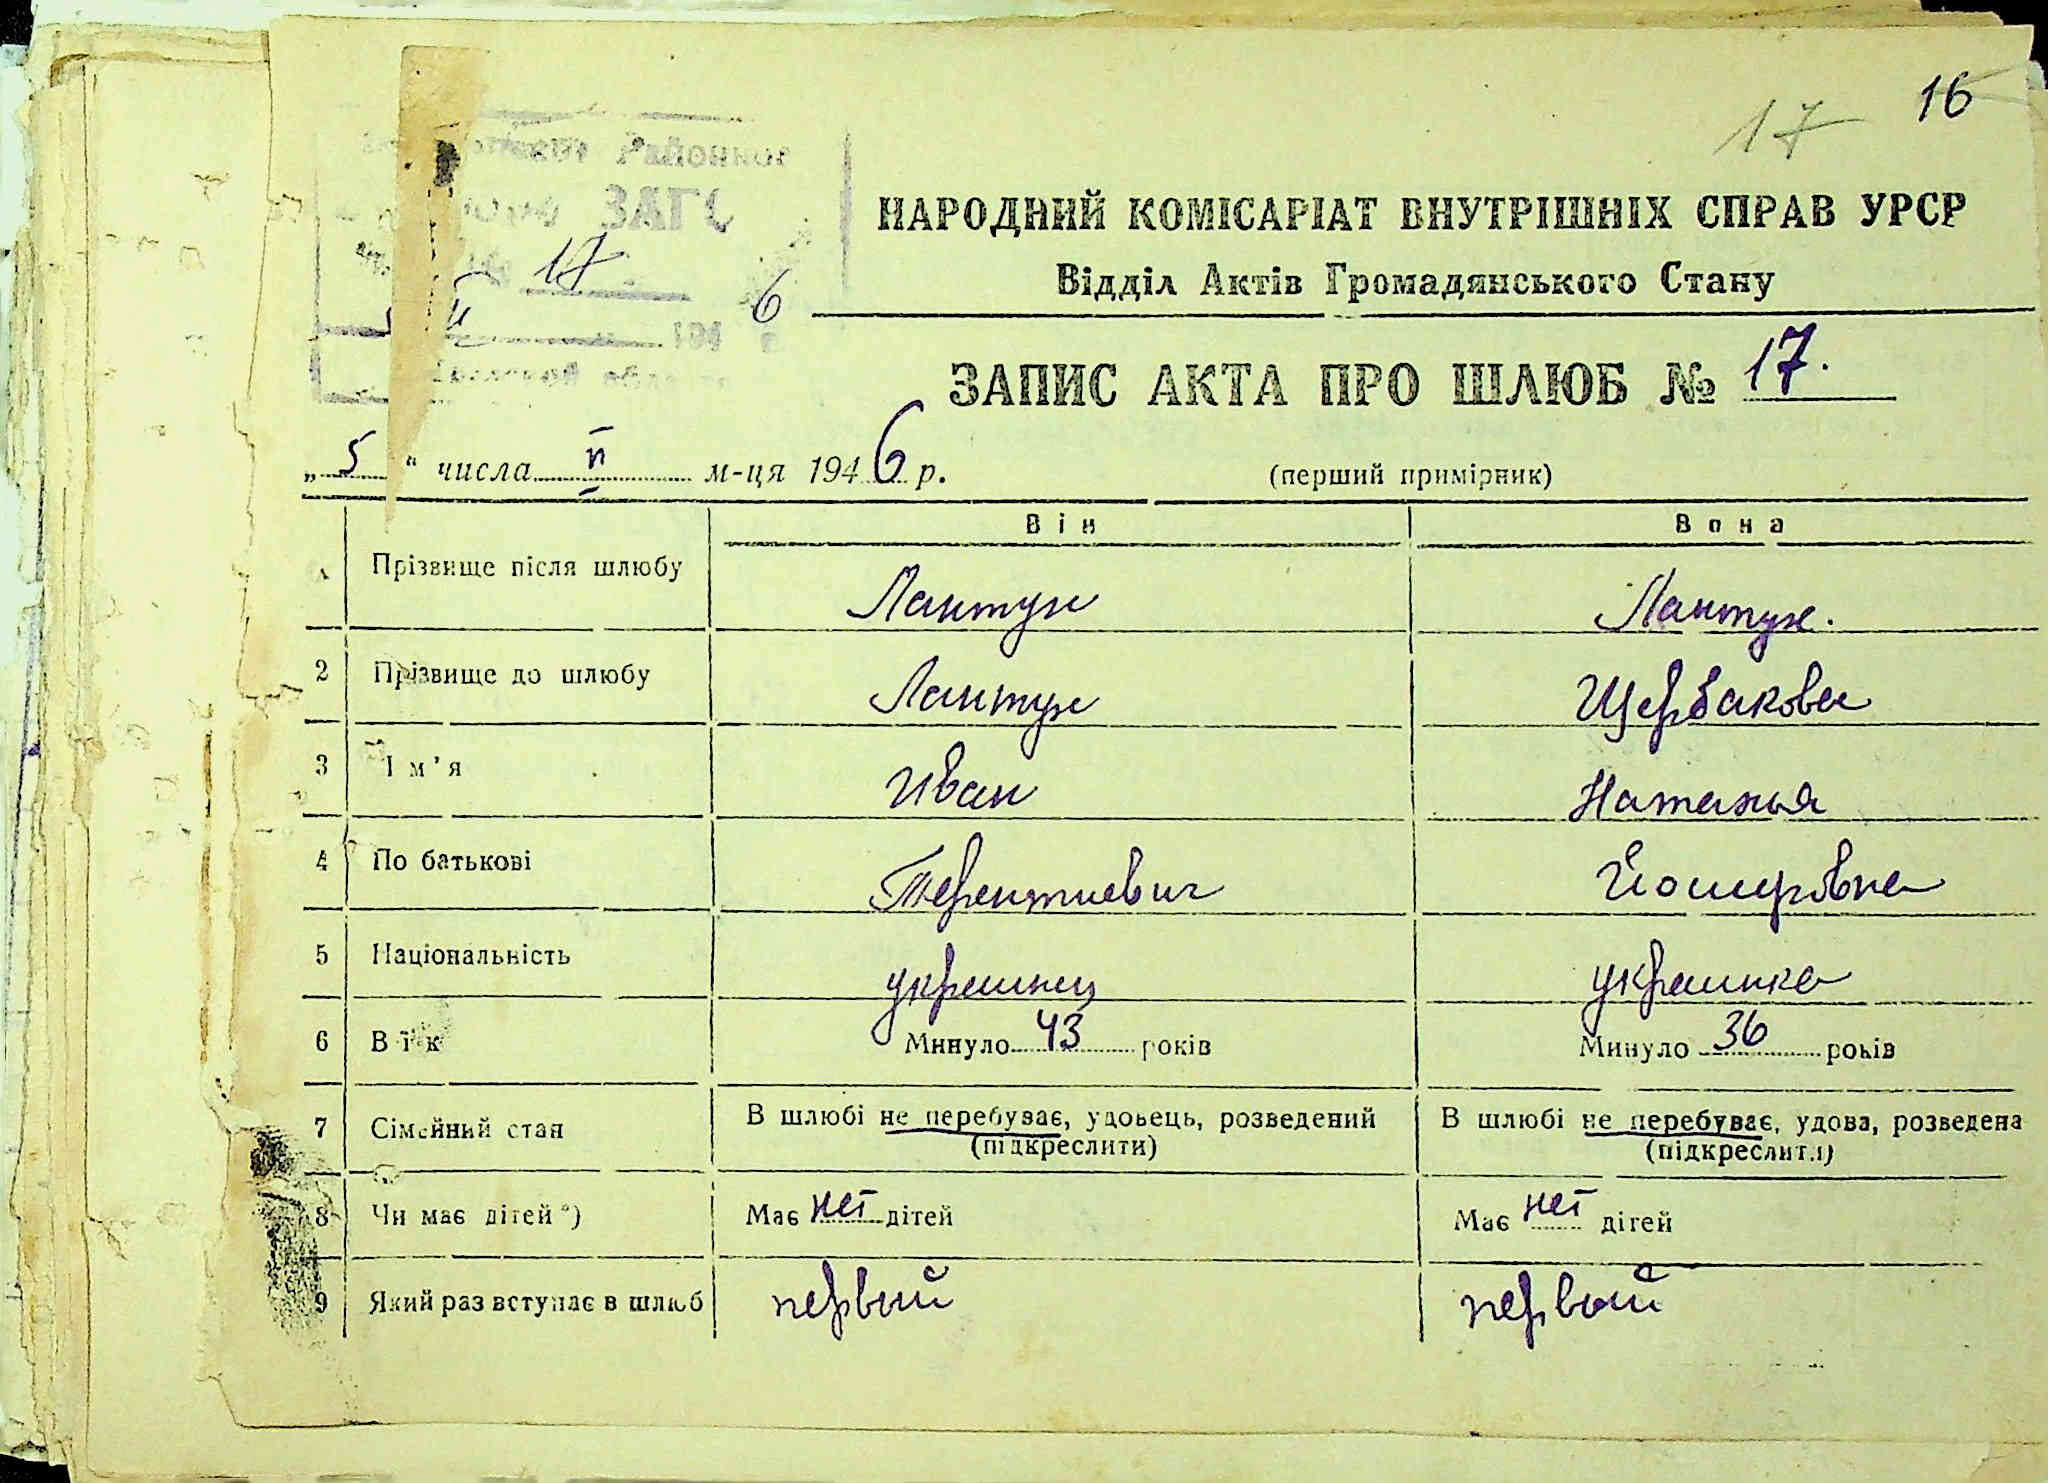 16
17
Районное
ЗАГС
17
6
194
НАРОДНИЙ КОМІСАРІАТ ВНУТРІШНІХ СПРАВ УРСР
Відділ Актів Громадянського Стану
ЗАПИС АКТА ПРО ШЛЮБ № 17.
„ 5 “ числа II м-ця 1946 р. (перший примірник)
Він Вона
1 Прізвище після шлюбу Лантух Лантух.
2 Прізвище до шлюбу Лантух Щербакова
3 Ім'я Иван Наталья
4 По батькові Терентиевич
5 Національність украинец украинка
6 Вік Минуло 43 років Минуло 36 років
7 Сімейний стан В шлюбі не перебуває, удовець, розведений В шлюбі не перебуває, удова, розведена
(підкреслити) (підкреслити)
8 Чи має дітей*) Має нет дітей Має нет дітей
9 Який раз вступає в шлюб первый первый